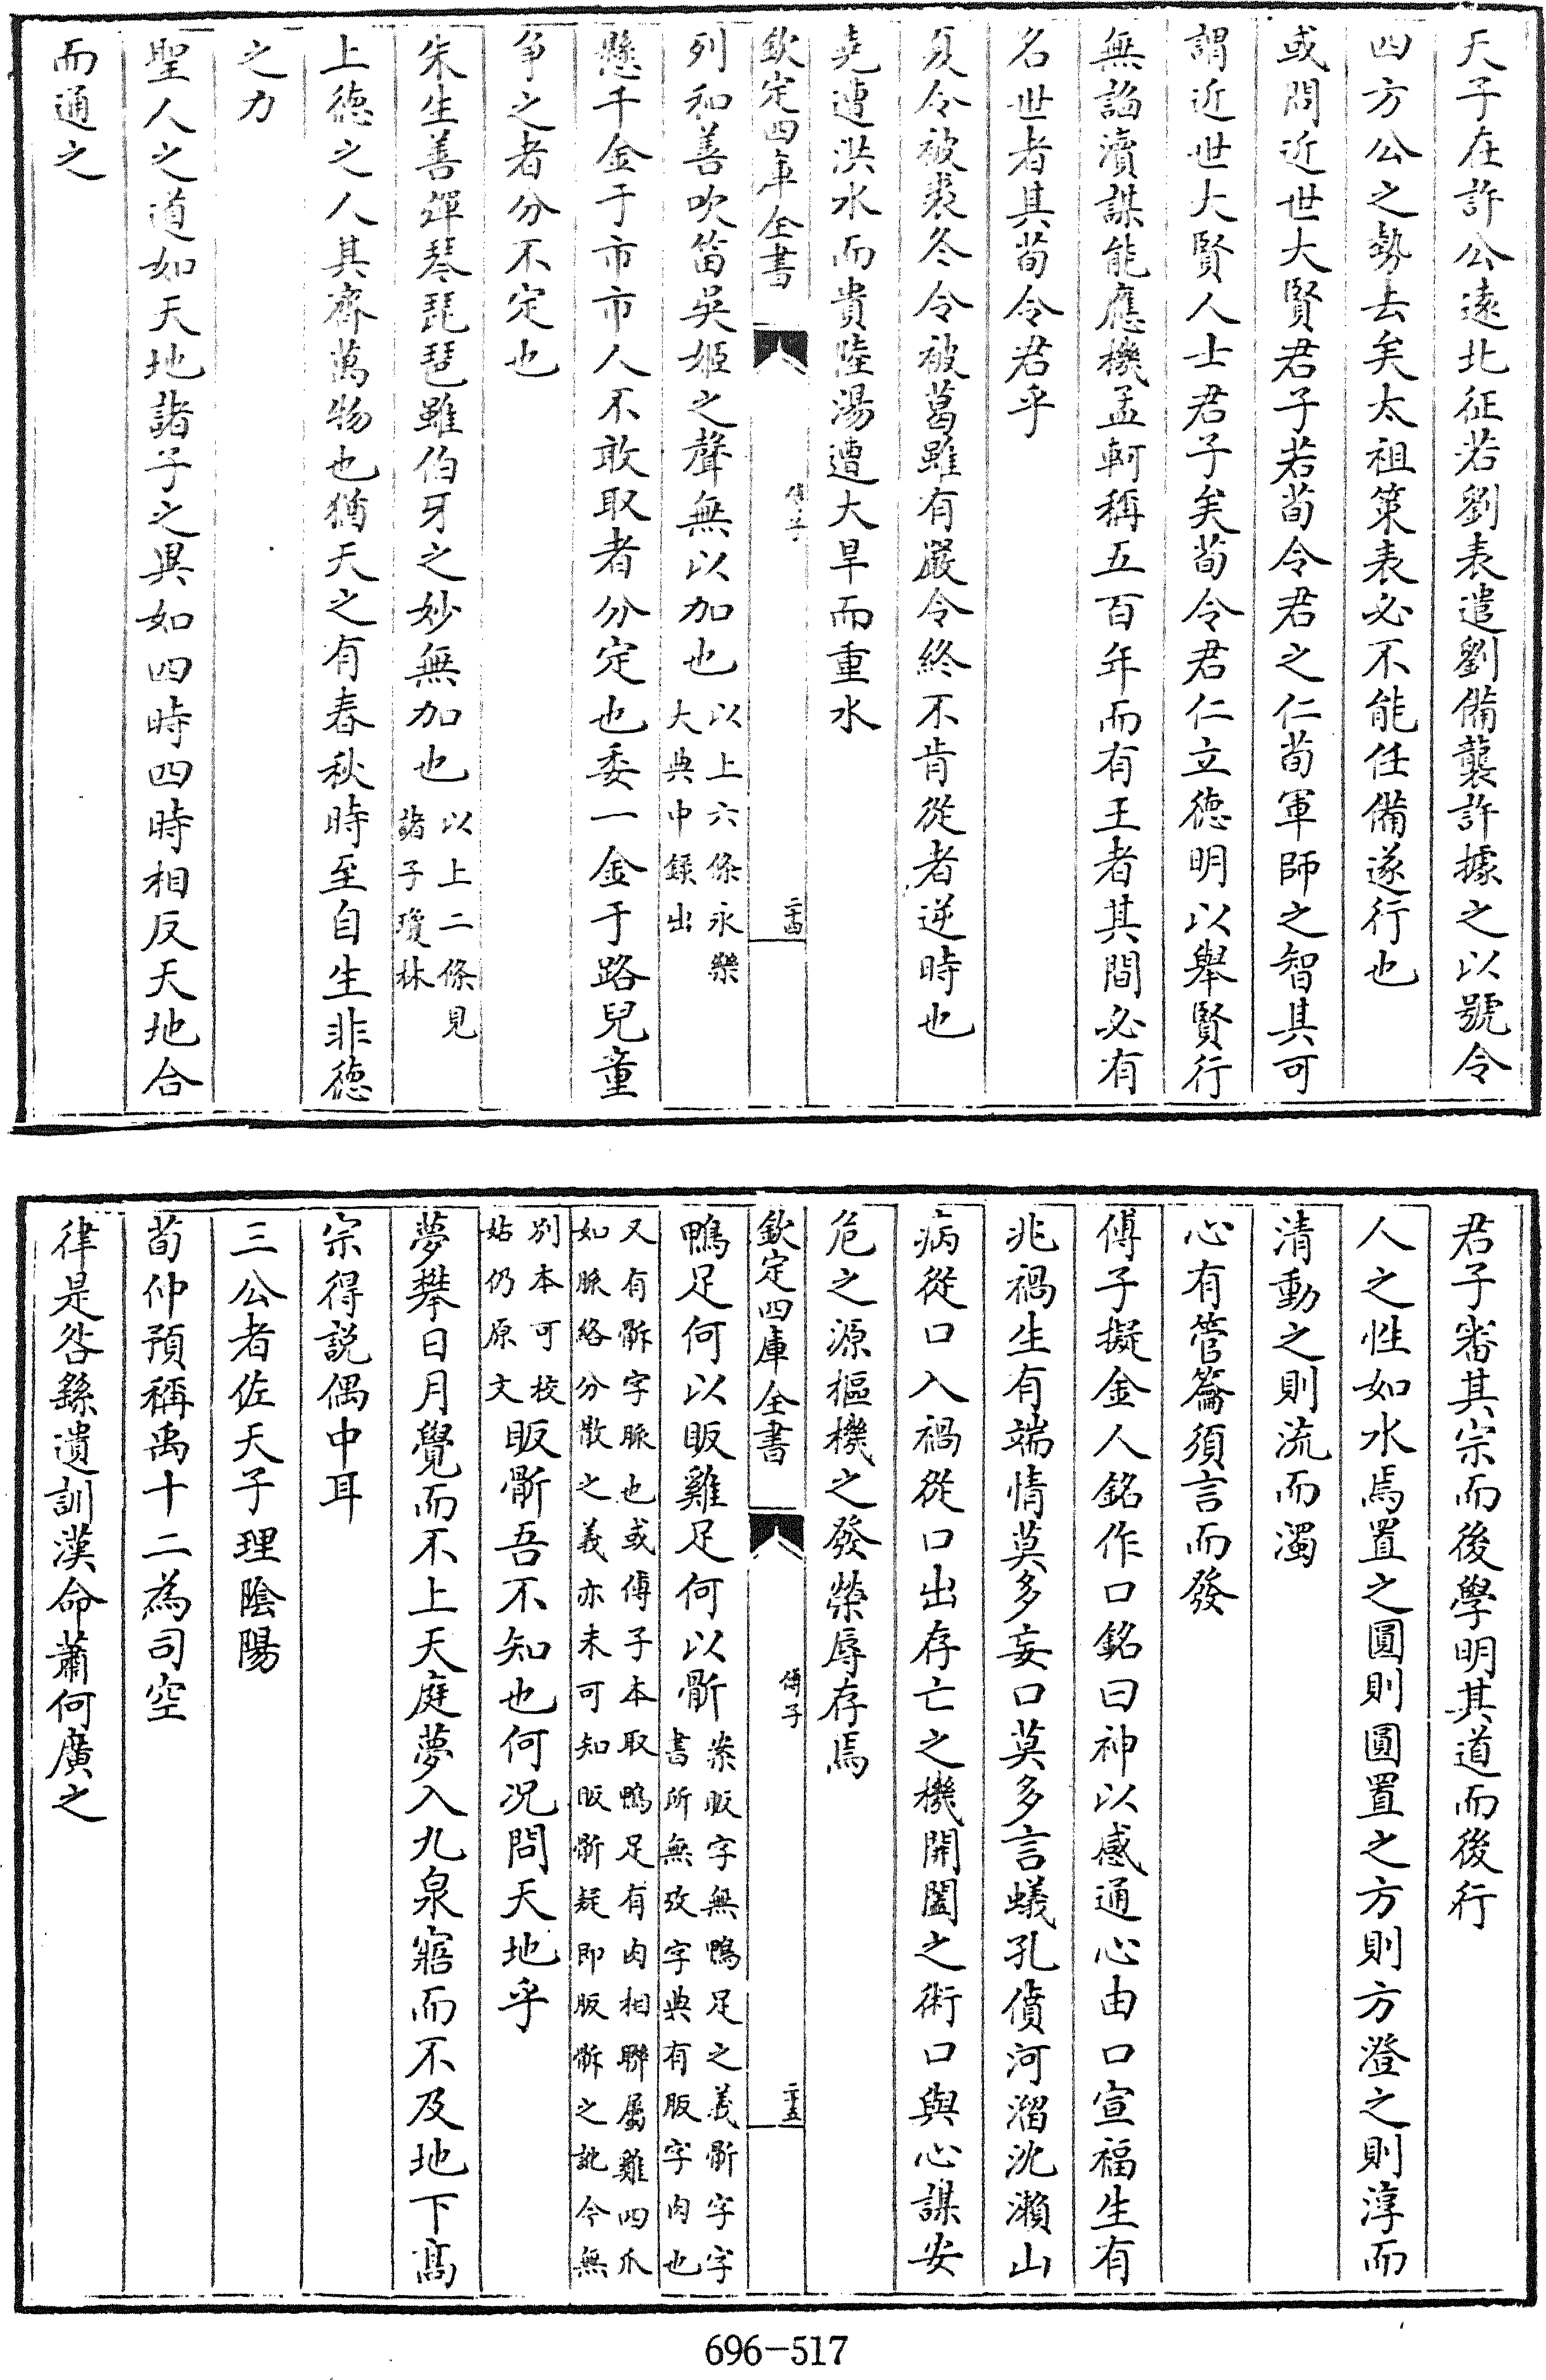 天子在許公遠北征若劉表遣劉備襲許據之以號令
四方公之勢去矣太祖策表必不能任備遂行也
或問近世大賢君子若荀令君之仁荀軍師之智其可
謂近世大賢人士君子矣荀令君仁立德明以舉賢行
無諂瀆謀能應機孟軻稱五百年而有王者其間必有
名世者其荀令君乎
夏令被裘冬令被葛雖有嚴令終不肯從者逆時也
堯遭洪水而貴陸湯遭大旱而重水
欽定四庫全書
傅子
二十四
列和善吹笛吳姬之聲無以加也以上六條永樂大典中錄出
懸千金于市市人不敢取者分定也委一金于路兒童
争之者分不定也
朱生善彈琴琵琶雖伯牙之妙無加也以上二條見諸子瓊林
上德之人其齊萬物也猶天之有春秋時至自生非德
之力
聖人之道如天地諸子之異如四時四時相反天地合
而通之
君子審其宗而後學明其道而後行
人之性如水焉置之圓則圓置之方則方澄之則渟而
清動之則流而濁
心有管籥須言而發
傅子擬金人銘作口銘曰神以感通心由口宣福生有
兆禍生有端情莫多妄口莫多言蟻孔償河溜沈瀨山
病從口入禍從口出存亡之機開闔之術口與心謀安
危之源樞機之發榮辱存焉
欽定四庫全書
傅子
二十五
鴨足何以䀛雞足何以斸案䀛字無鴨足之義斸字字書所無攷字典有䏜字肉也
又有𣂁字脈也或傅子本取鴨足有肉相聯屬雞四爪如脈絡分散之義亦未可知䀛斸疑即䏜𣂁之訛今無
別本可校姑仍原文䀛斸吾不知也何况問天地乎
夢攀日月覺而不上天庭夢入九泉寤而不及地下高
宗得説偶中耳
三公者佐天子理陰陽
荀仲預稱禹十二為司空
律是咎繇遺訓漢命蕭何廣之
696-517